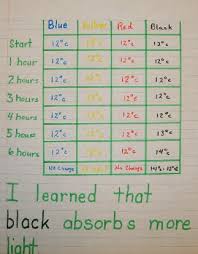 Blue Yellow Red Black
Start 12°c 12°c 12°c 12°c
1 hour 12°c 12°c 12°c 12°c
2 hours 12°c 12°c 12°c 12°c
3 hours 12°c 12°c 12°c 12°c
4 hours 12°c 12°c 12°c 12°c
5 hours 12°c 12°c 12°c 13°c
6 hours 12°c 12°c 12°c 14°c
No Change No Change
I learned that
black absorbs more
light